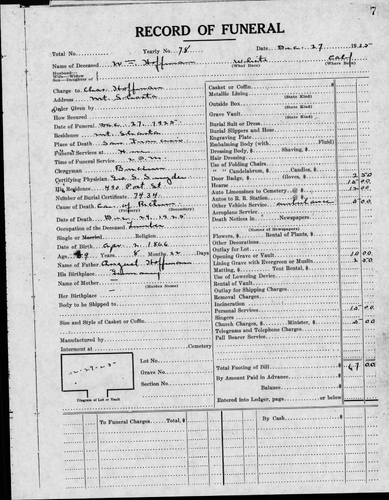 7
RECORD OF FUNERAL
Total No. Yearly No. 78 Date Dec. 27 1925
Name of Deceased W — Hoffmann White Calif
(What Race) (Where Born)
Husband—
Wife—Widow
Son—Daughter of
Charge to Chas. Hoffmann
Address Mt. Shasta
Order Given by
How Secured
Date of Funeral Dec. 27, 1925
Residence Mt. Shasta
Place of Death San Francisco
Services at Home
Time of Funeral Service 2 P.M.
Clergyman
Certifying Physician
His Residence 490 Post St.
Number of Burial Certificate 7434
Cause of Death Ca. of Rectum
(Primary) (Secondary)
Date of Death Dec. 24, 1925
Occupation of the Deceased
Single or Married Religion
Date of Birth Apr. 2, 1866
Age 59 Years 8 Months 22 Days
Name of Father August Hoffmann
His Birthplace
Name of Mother —
(Maiden Name)
Her Birthplace
Body to be Shipped to
Size and Style of Casket or Coffin
Manufactured by
Interment at Cemetery
12-27-25
Diagram of Lot or Vault
Lot No.
Grave No.
Section No.
Casket or Coffin
Metallic Lining
(State Kind)
Outside Box
(State Kind)
Grave Vault
(State Kind)
Burial Suit or Dress
Burial Slippers and Hose
Engraving Plate
Embalming Body (with Fluid)
Dressing Body, $ Shaving, $
Hair Dressing
Use of Folding Chairs
" " Candelabrum, $ Candles, $
Door Badge, $ Gloves, $ 2 50
Hearse 15 00
Auto Limousines to Cemetery @ $ 12 00
Autos to R. R. Station @ $
Other Vehicle Service Ambulance 5 00
Aeroplane Service
Death Notices in Newspapers
(Names of Newspapers)
Flowers, $ Rental of Plants, $
Other Decorations
Outlay for Lot
Opening Grave or Vault 10 00
Lining Grave with Evergreen or Muslin 2 50
Matting, $ Tent Rental, $
Use of Lowering Device
Rental of Vault
Outlay for Shipping Charges
Removal Charges
Incineration
Personal Services 10 00
Singers
Church Charges, $ Minister, $ 5 00
Telegrams and Telephone Charges
Pall Bearer Service
Total Footing of Bill $ 67 00
By Amount Paid in Advance
Balance
Entered into Ledger, page or below
To Funeral Charges Total, $
By Cash $